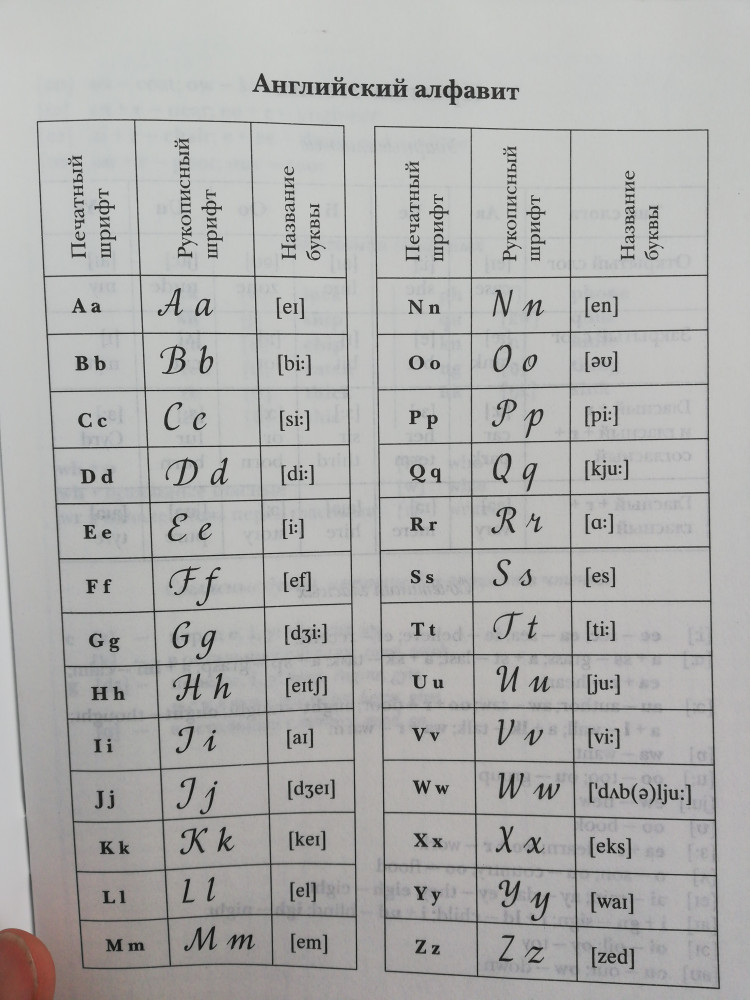 Английский алфавит
Печатный шрифт Рукописный шрифт Название буквы
A a A a [eɪ]
B b B b [biː]
C c C c [siː]
D d D d [diː]
E e E e [iː]
F f F f [ef]
G g G g [dʒiː]
H h H h [eɪtʃ]
I i I i [aɪ]
J j J j [dʒeɪ]
K k K k [keɪ]
L l L l [el]
M m M m [em]
Печатный шрифт Рукописный шрифт Название буквы
N n N n [en]
O o O o [əʊ]
P p P p [piː]
Q q Q q [kjuː]
R r R r [ɑː]
S s S s [es]
T t T t [tiː]
U u U u [juː]
V v V v [viː]
W w W w [ˈdʌb(ə)ljuː]
X x X x [eks]
Y y Y y [waɪ]
Z z Z z [zed]